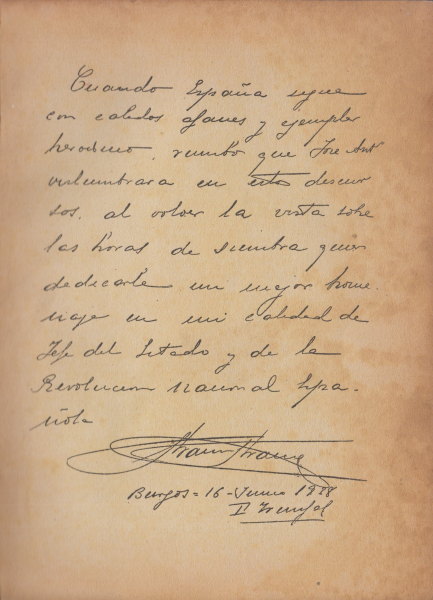 Cuando España sigue
con callados afanes y ejemplar
heroismo, rumbo que Jose Antº
vislumbrara en estos discur
sos, al volver la vista sobre
las horas de siembra quiero
dedicarle un mejor home-
naje en mi calidad de
Jefe del Estado y de la
Revolucion Nacional Espa-
ñola
Burgos = 16 - Junio 1938
II Triunfal